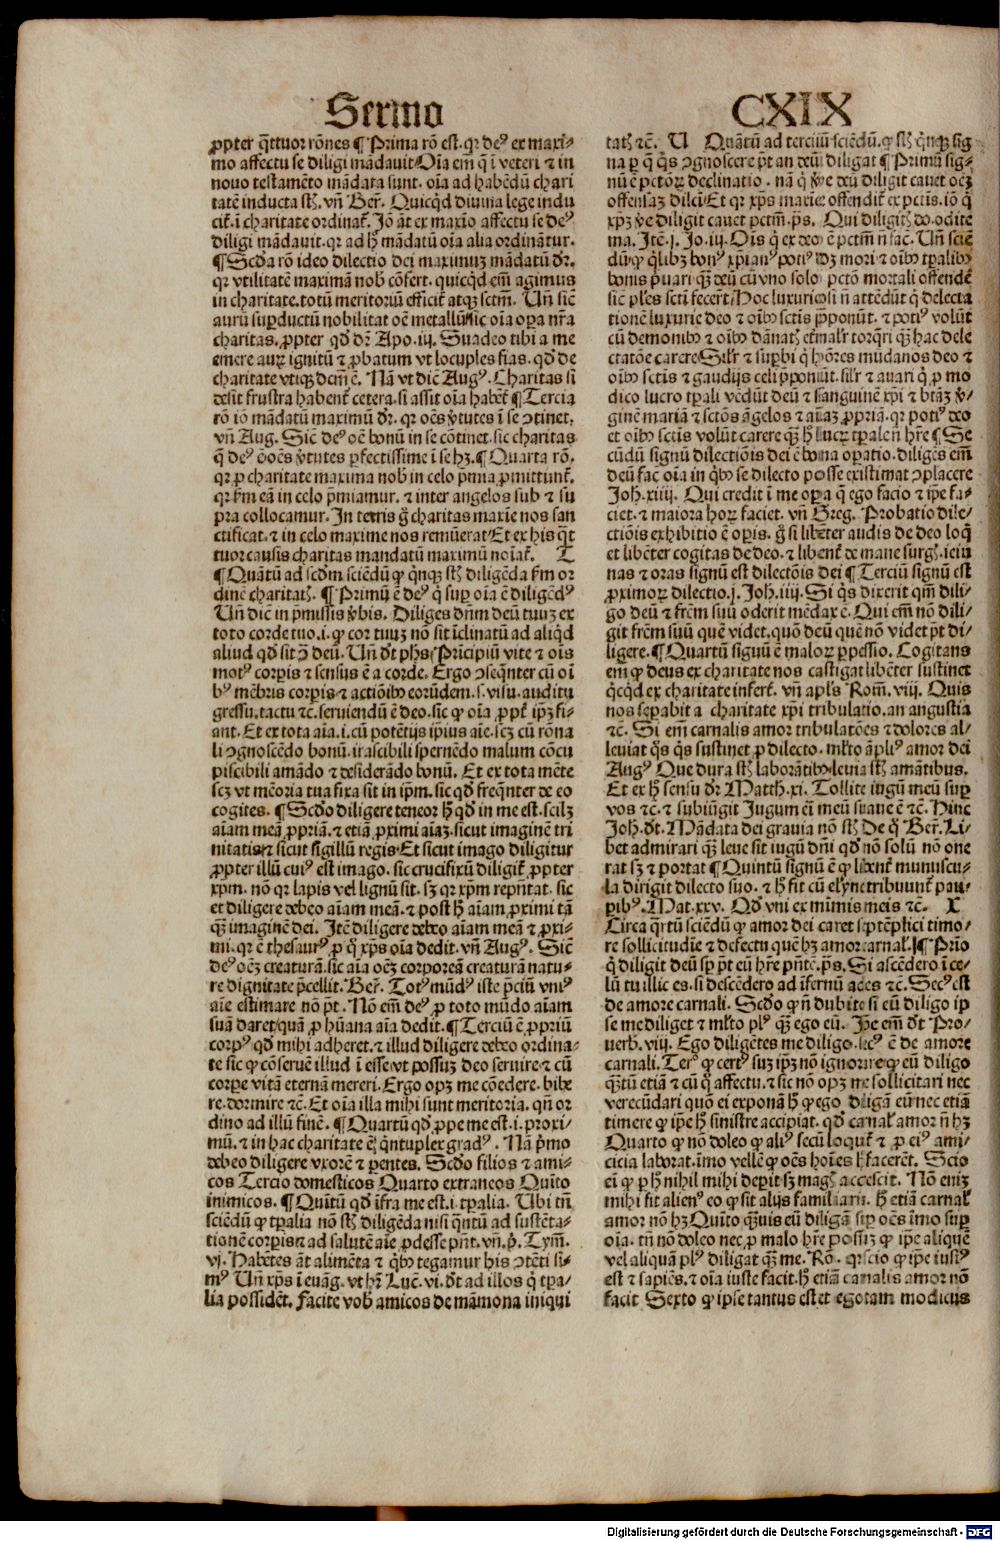 Sermo
CXIX
ꝓpter q̄ttuor rōnes ¶ Prima rō est. qꝛ deꝰ ex maxi⸗
mo affectu se diligi mādauit Oīa em̄ q̄ ī veteri ⁊ in
nouo testamēto mādata sunt. oīa ad habēdū chari
tatē inducta st̄. vn̄ Ber̄. Quicqd diuina lege indu
cit̄. ī charitate ordinat̄. Jō āt ex maxīo affectu se deꝰ
diligi mādauit. qꝛ ad h̄ mādatū oīa alia ordināntur.
¶ Scd̄a rō ideo dilectio dei maximuꝫ mādatū dr̄.
qꝛ vtilitatē maximā nob̄ cōfert. quicqd em̄ agimus
in charitate. totū meritoriū efficit̄ atqꝫ sctm̄. Un̄ sic̄
aurū suꝑductū nobilitat oē metallū sic oīa oꝑa nr̄a
charitas. ꝓpter qd̄ dr̄ Apo. iij. Suadeo tibi a me
emere auꝝ ignitū ⁊ ꝓbatum vt locuples fias. qd̄ de
charitate vtiqꝫ dcm̄ ē. Nā vt dic̄ Augꝰ. Charitas si
desit frustra habent̄ cetera. si assit oīa habēt̄ ¶ Tercia
rō iō mādatū maximū dr̄. qꝛ oēs v̄tutes ī se ↄtinet.
vn̄ Aug. Sic̄ deꝰ oē bonū in se cōtinet. sic charitas
q̄ deꝰ ē oēs v̄tutes ꝑfectissime ī se hꝫ. ¶ Quarta rō.
qꝛ ꝑ charitate maxima nob̄ in celo p̄mia ꝓmittunt̄.
qꝛ ẜm eā in celo p̄miamur. ⁊ inter angelos sub ⁊ su
pra collocamur. In terris g̊ charitas maxīe nos san
ctificat. ⁊ in celo maxime nos remūerat Et ex his q̄t
tuor causis charitas mandatū maximū noīat̄. T
¶ Quātū ad scdm̄. sciēdū ꝙ qnqꝫ st̄ diligēda ẜm or
dinē charitat̄. ¶ Primū ē deꝰ q̄ suꝑ oīa ē diligēdꝰ
Un̄ dic̄ in p̄missis v̄bis. Diliges dn̄m deū tuuꝫ ex
toto corde tuo. i. ꝙ cor tuuꝫ nō sit īclinatū ad aliqd
aliud qd̄ sit ↄ̄ deū. Un̄ dt̄ ph̄s. Pricipiū vite ⁊ oīs
motꝰ corꝑis ⁊ sensus ē a corde. Ergo ↄseqnter cū oī
bꝰ mēbris corꝑis ⁊ actiōibꝰ eorūdem. s. visu. auditu
gressu. tactu ⁊c̄. seruiendū ē deo. sic ꝙ oīa ꝓpt̄ ipꝫ fi⸗
ant. Et ex tota aīa. i. cū potētijs ipius aīe. scꝫ cū rōna
li ↄgnoscēdo bonū. irascibili spernēdo malum cōcu
piscibili amādo ⁊ desiderādo bonū. Et ex tota mēte
scꝫ vt mēoria tua fixa sit in ipm̄. sic qd̄ freqnter de eo
cogites. ¶ Scd̄o diligere teneor h̄ qd̄ in me est. scilꝫ
aīam meā ꝓpriā. ⁊ etiā ꝓximi aīaꝫ. sicut imaginē tri
nitatis ⁊ sicut sigillū regis. Et sicut imago diligitur
ꝓpter illū cuiꝰ est imago. sic crucifixū diligit̄ ꝓpter
xp̄m. nō qꝛ lapis vel lignū sit. sꝫ qꝛ xp̄m repn̄tat. sic
et diligere debeo aīam meā. ⁊ post h̄ aīam ꝓximi tā
qꝫ imaginē dei. Itē diligere debeo aīam meā ⁊ ꝓxi⸗
mi. qꝛ ē thesaurꝰ ꝑ q̄ xp̄s oīa dedit. vn̄ Augꝰ. Sic̄
deꝰ oēꝫ creaturā. sic aīa oēꝫ corporeā creaturā natu⸗
re dignitate p̄cellit. Ber̄. Totꝰ mūdꝰ iste p̄ciū vniꝰ
aīe estimare nō pt̄. Nō em̄ deꝰ ꝓ toto mūdo aīam
suā daret quā ꝓ hūana aīa dedit. ¶ Terciū ē ꝓpriū
corpꝰ qd̄ mihi adheret. ⁊ illud diligere debeo ordina⸗
te sic ꝙ cōseruē illud ī esse vt possuꝫ deo seruire. ⁊ cū
corꝑe vitā eternā mereri. Ergo opꝫ me cōedere. bibe
re. dormire ⁊c̄. Et oīa illa mihi sunt meritoria. qn̄ or
dino ad illū finē. ¶ Quartū qd̄ ꝓpe me est. i. proxi⸗
mū. ⁊ in hac charitate ē q̄ntuplex gradꝰ. Nā p̄mo
debeo diligere vxorē ⁊ ꝑentes. Scd̄o filios ⁊ ami⸗
cos Tercio domesticos Quarto extraneos Quīto
inimicos. ¶ Quītū qd̄ īfra me est. i. tꝑalia. Ubi tn̄
sciēdū ꝙ tꝑalia nō st̄ diligēda nisi q̄ntū ad sustēta⸗
tionē corꝑis ⁊ ad salutē aīe ꝓdesse pn̄t. vn̄. p̄. Tym̄.
vj. Habētes āt alimēta ⁊ qbꝰ tegamur his ↄtēti si⸗
mꝰ Un̄ xp̄s ī euāg. vt hr̄ Luc̄. vi. dt̄ ad illos q̄ tꝑa⸗
lia possidēt. Facite vob̄ amicos de māmona iniqui
tat̄ ⁊c̄. U Quātū ad terciū sciēdū. ꝙ st̄ qnqꝫ sig
na ꝑ q̄ qs ↄgnoscere pt̄ an deū diligat ¶ Primū sig⸗
nū ē pctōꝝ declinatio. nā q̄ v̄e deū diligit cauet oēꝫ
offensaꝫ dilcti Et qꝛ xp̄s maxīe offendit̄ ex pctis. iō q̄
xp̄ꝫ v̄e diligit cauet pctm̄. ps̄. Qui diligit̄ do. odite
ma. Itē. j. Jo. iij. Oīs q̄ ex deo ē pctm̄ n̄ fac̄. Un̄ sciē
dū ꝙ qlibꝫ bonꝰ xp̄ianꝰ potiꝰ dꝫ mori ⁊ oībꝰ tꝑalibꝰ
bonis p̄uari qꝫ deū cū vno solo pctō mortali offendē
sic ples scti fecerūt. Hoc luxuriosi n̄ attēdūt q̄ delecta
tionē luxurie deo ⁊ oībꝰ sctis p̄ponūt. ⁊ potiꝰ volūt
cū demonibꝰ ⁊ oībꝰ dānat̄ et̄nalr̄ torqri qꝫ hac dele
ctatōe carere Silr̄ ⁊ suꝑbi q̄ hōres mūdanos deo ⁊
oībꝰ sctis ⁊ gaudijs celi p̄ponūt. silr̄ ⁊ auari q̄ ꝓ mo
dico lucro tꝑali vēdūt deū ⁊ sanguinē xp̄i ⁊ btāꝫ v̄⸗
ginē mariā ⁊ sctōs āgelos ⁊ aīaꝫ ꝓpriā. qꝛ potiꝰ deo
et oībꝰ sctis volūt carere qꝫ h̄ lucꝝ tꝑale n̄ hr̄e ¶ Se
cūdū signū dilectiōis dei ē bona oꝑatio. diligēs em̄
deū fac̄ oīa in qbꝰ se dilecto posse existimat ↄplacere
Joh. xiiij. Qui credit ī me oꝑa q̄ ego facio ⁊ ip̄e fa⸗
ciet. ⁊ maiora hoꝝ faciet. vn̄ Greg. Probatio dile⸗
ctiōis exhibitio ē oꝑis. g̊ si libēter audis de deo loq̄
et libēter cogitas de deo. ⁊ libent̄ de mane surḡ. ieiu
nas ⁊ oras signū est dilectōis dei ¶ Terciū signū est
ꝓximoꝝ dilectio. j. Joh. iiij. Si qs dixerit qm̄ dili⸗
go deū ⁊ frēm suū oderit mēdax ē. Qui em̄ nō dili⸗
git frēm suū quē videt. quō deū quē nō videt pt̄ di⸗
ligere. ¶ Quartū signū ē maloꝝ ꝑpessio. Cogitans
em̄ ꝙ deus ex charitate nos castigat libēter sustinet
qcqd ex charitate infert̄. vn̄ apl̄s Rom̄. viij. Quis
nos seꝑabit a charitate xp̄i tribulatio. an angustia
⁊c̄. Si em̄ carnalis amor tribulatōes ⁊ dolores al⸗
leuiat qs qs sustinet ꝓ dilecto. mlto āpliꝰ amor dei
Augꝰ Que dura st̄ laborātibꝰ leuia st̄ amātibus.
Et ex h̄ sensu dr̄ Matth. xi. Tollite iugū meū suꝑ
vos ⁊c̄. ⁊ subiūgit Jugum eī meū suaue ē ⁊c̄. Hinc
Joh. dt̄. Mādata dei grauia nō st̄ De q̄ Ber̄. Li⸗
bet admirari qꝫ leue sit iugū dn̄i qd̄ nō solū nō one
rat sꝫ ⁊ portat ¶ Quintū signū ē ꝙ libent̄ munuscu⸗
la dirigit dilecto suo. ⁊ h̄ fit cū elyne tribuunt̄ pau⸗
ꝑibꝰ. Mat. xxv. Qd̄ vni ex mīmis meis ⁊c̄. X
Circa q̄rtū sciēdū ꝙ amor dei caret septēplici timo⸗
re sollicitudīe ⁊ defectu quē hꝫ amor carnal̄. ¶ Pr̄io
q̄ diligit deū sꝑ pt̄ eū hr̄e pn̄tē. ps̄. Si ascēdero ī ce⸗
lū tu illic es. si descēdero ad īfernū ades ⁊c̄. Secꝰ est
de amore carnali. Scd̄o ꝙ n̄ dubito si eū diligo ip
se me diliget ⁊ mlto plꝰ qꝫ ego eū. Ip̄e em̄ dt̄ Pro⸗
uerb. viij. Ego diligētes me diligo. secꝰ ē de amore
carnali. Terᵒ ꝙ certꝰ suꝫ ipꝫ nō ignorare ꝙ eū diligo
qꝫtū etiā ⁊ cū q̄ affectu. ⁊ sic nō opꝫ me sollicitari nec
verecūdari quō ei exponā h̄ ꝙ ego diligā eū nec etiā
timere ꝙ ip̄e h̄ sinistre accipiat. qd̄ carnal̄ amor n̄ hꝫ
Quarto ꝙ nō doleo ꝙ aliꝰ secū loquit̄ ⁊ ꝓ eiꝰ ami⸗
cicia laborat. īmo vellē ꝙ oēs hoīes h̄ facerēt. Scio
ei ꝙ ꝑ h̄ nihil mihi deꝑit sꝫ magꝭ accescit. Nō eniꝫ
mihi fit alienꝰ eo ꝙ sit alijs familiaris. h̄ etiā carnal̄
amor nō hꝫ Quīto qꝫuis eū diligā sup̄ oēs īmo suꝑ
oīa. tn̄ nō doleo nec ꝓ malo hr̄e possuꝫ ꝙ ip̄e aliquē
vel aliquā plꝰ diligat qꝫ me. Rō. qꝛ scio ꝙ ip̄e iustꝰ
est ⁊ sapiēs. ⁊ oīa iuste facit. h̄ etiā carnalis amor nō
facit Sexto ꝙ ipse tantus est et ego tam modicus
Digitalisierung gefördert durch die Deutsche Forschungsgemeinschaft - DFG